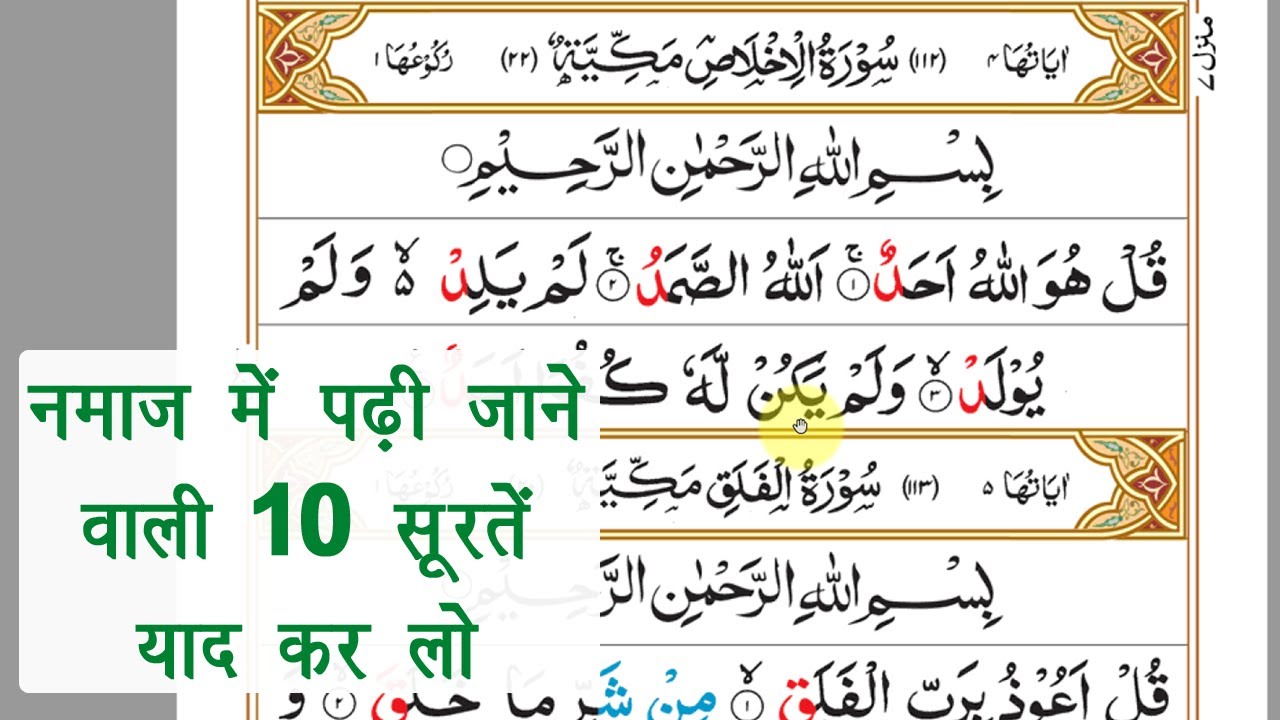 منزل ٧
اٰيَاتُهَا ٤ (١١٢) سُوْرَةُ الْاِخْلَاصِ مَكِّيَّةٌ (٢٢) رُكُوْعُهَا ١
بِسْمِ اللّٰهِ الرَّحْمٰنِ الرَّحِيْمِ
قُلْ هُوَ اللّٰهُ اَحَدٌ ۚ ١ اَللّٰهُ الصَّمَدُ ۚ ٢ لَمْ يَلِدْ ۙ٥ وَلَمْ
يُوْلَدْ ۙ ٣ وَلَمْ يَكُنْ لَّهٗ كُفُوًا اَحَدٌ
اٰيَاتُهَا ٥ (١١٣) سُوْرَةُ الْفَلَقِ مَكِّيَّةٌ رُكُوْعُهَا ١
بِسْمِ اللّٰهِ الرَّحْمٰنِ الرَّحِيْمِ
قُلْ اَعُوْذُ بِرَبِّ الْفَلَقِ ۙ ١ مِنْ شَرِّ مَا خَلَقَ ۙ ٢ وَ
नमाज में पढ़ी जाने
वाली 10 सूरतें
याद कर लो